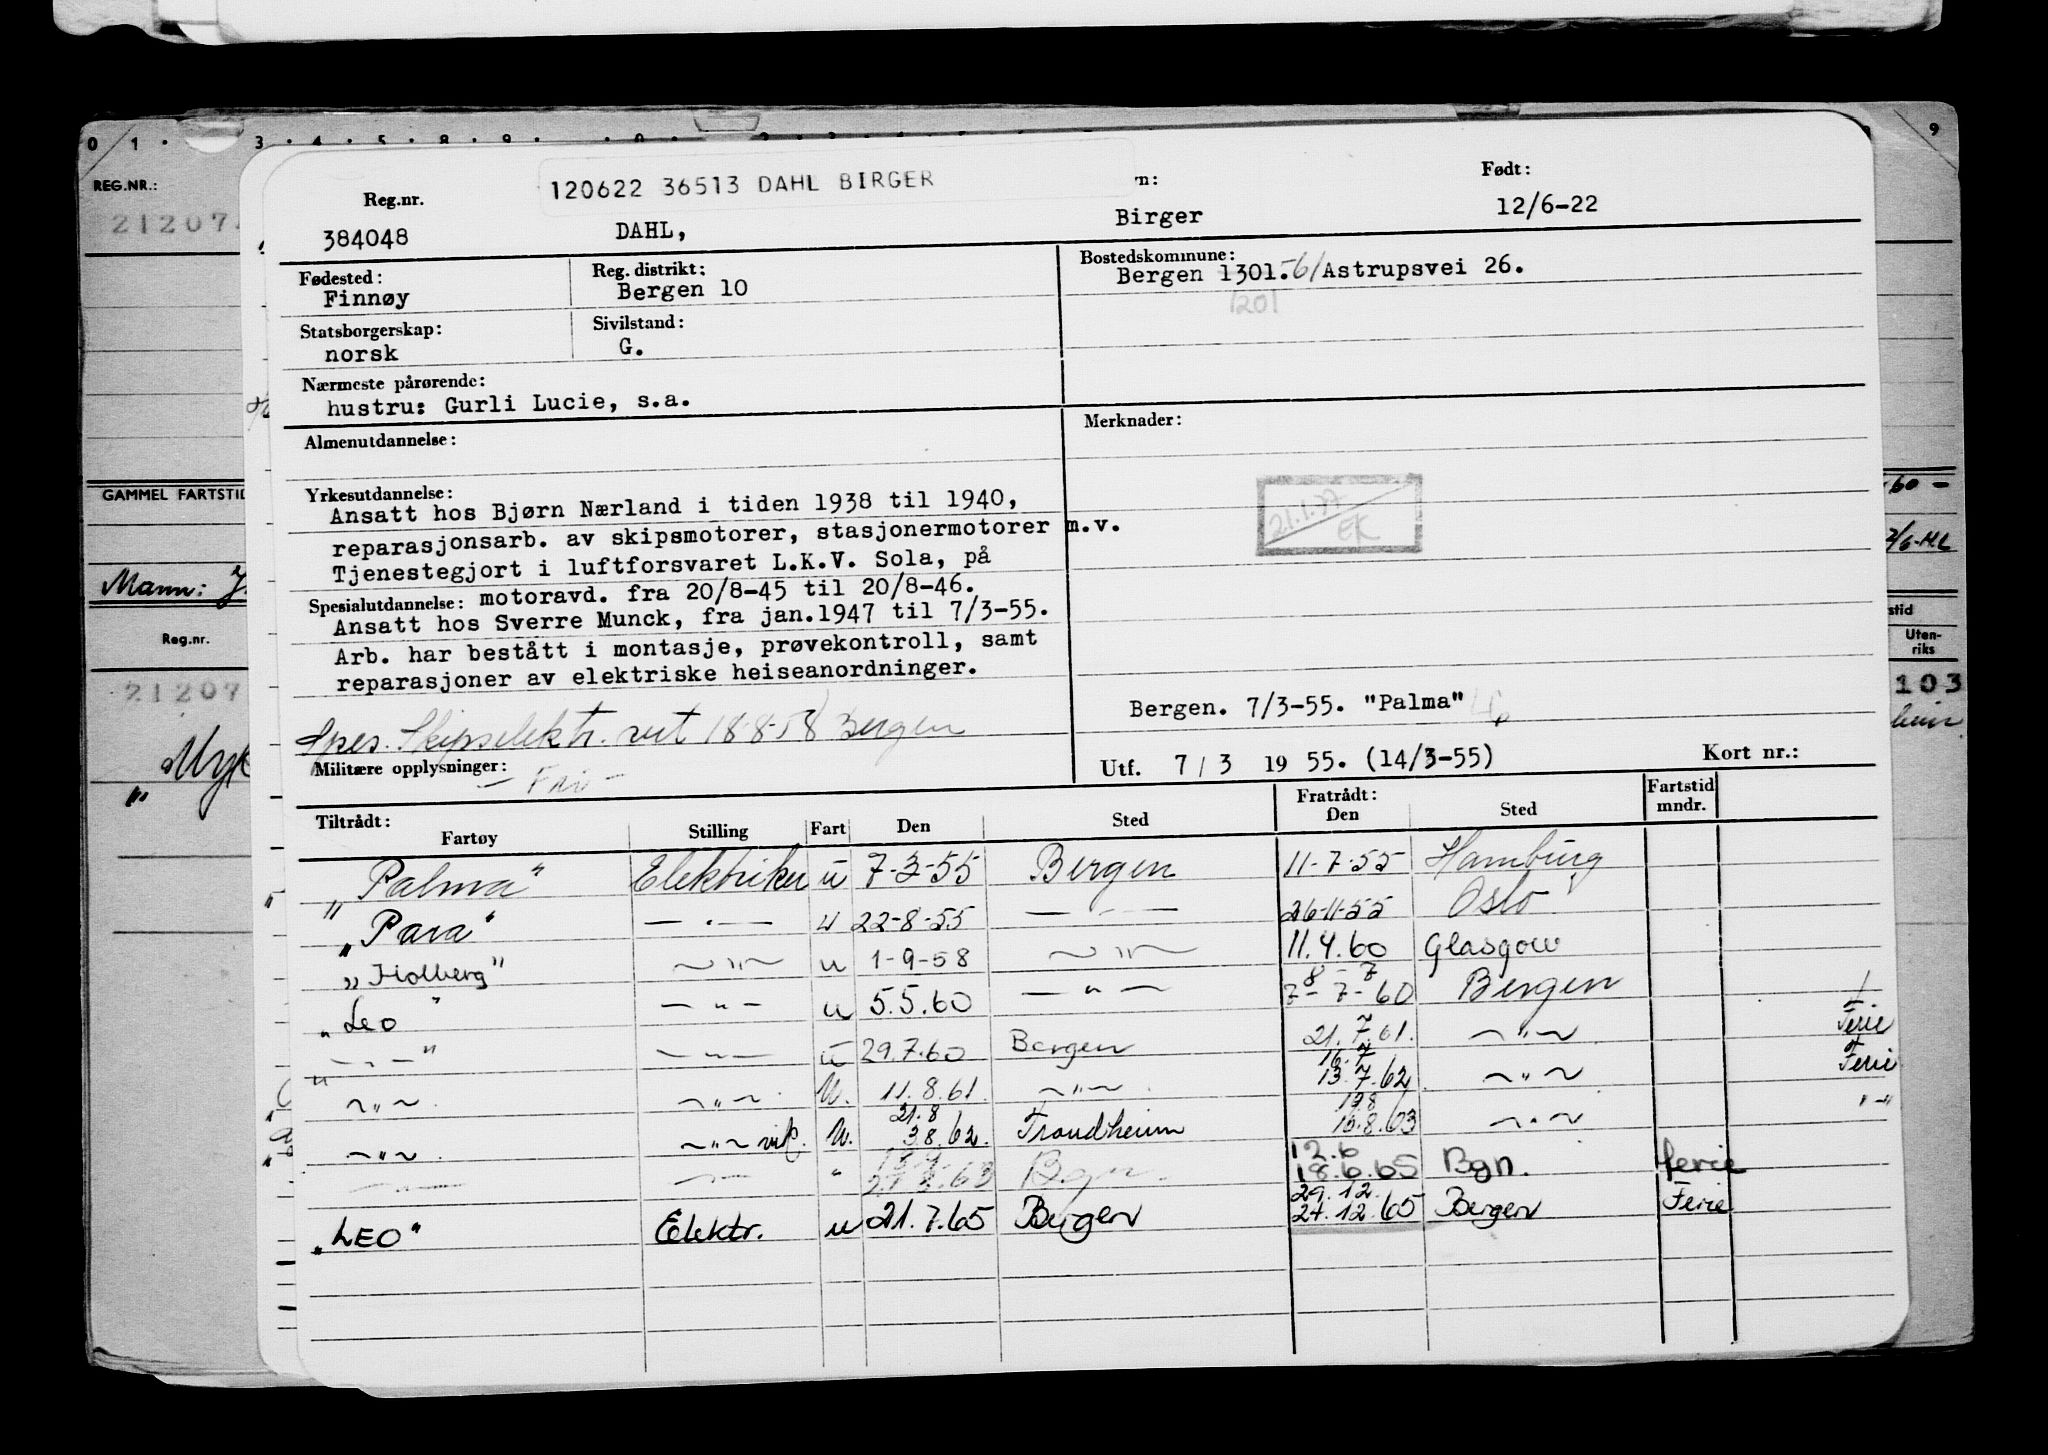 0 1 · 3 · 4 · 5 · 8 · 9 · 0 ·
9
REG.NR.:
21207
GAMMEL FARTSTID
Mann:
Reg.nr.
21207
60 -
stid
Uten-
riks
103
120622 36513 DAHL BIRGER
n:
Født:
Reg.nr.
384048 DAHL, Birger 12/6-22
Fødested: Reg. distrikt: Bostedskommune:
Finnøy Bergen 10 Bergen 1301.-61/Astrupsvei 26.
1201
Statsborgerskap: Sivilstand:
norsk G.
Nærmeste pårørende:
hustru: Gurli Lucie, s.a.
Almenutdannelse: Merknader:
Yrkesutdannelse:
Ansatt hos Bjørn Nærland i tiden 1938 til 1940,
reparasjonsarb. av skipsmotorer, stasjonermotorer m.v.
Tjenestegjort i luftforsvaret L.K.V. Sola, på
Spesialutdannelse: motoravd. fra 20/8-45 til 20/8-46.
Ansatt hos Sverre Munck, fra jan.1947 til 7/3-55.
Arb. har bestått i montasje, prøvekontroll, samt
reparasjoner av elektriske heiseanordninger.
21.1.77
EK
Bergen. 7/3-55. "Palma"
Spes. Skipselektr. 18-8-58 Bergen
Militære opplysninger: Utf. 7 / 3 19 55. (14/3-55) Kort nr.:
Tiltrådt: Fratrådt: Fartstid
Fartøy Stilling Fart Den Sted Den Sted mndr.
„Palma" Elektriker u 7-3-55 Bergen 11-7-55 Hamburg
„Para" — . — u 22-8-55 — " — 26-11-55 Oslo
„Holberg" ~ " ~ u 1-9-58 ~ " ~ 11.4.60 Glasgow
8 - 7
„Leo" — " — u 5.5.60 — " — 7-7-60 Bergen
— " — — " — u 29.7.60 Bergen 21.7.61. ~ " ~ Ferie
16.7
~ " ~ ~ " ~ U. 11.8.61. ~ " ~ 13.7.62 ~ " ~ Ferie
21.8 19.8
~ " ~ ~ " ~ U. 3.8.62. Trondheim 16.8.63 ~ " ~ " - "
12.6
— " — — " — " Bgn. 18.6.65 Bgn. ferie
29.12.
„LEO" Elektr. u 21.7.65 Bergen 24.12.65 Bergen Ferie